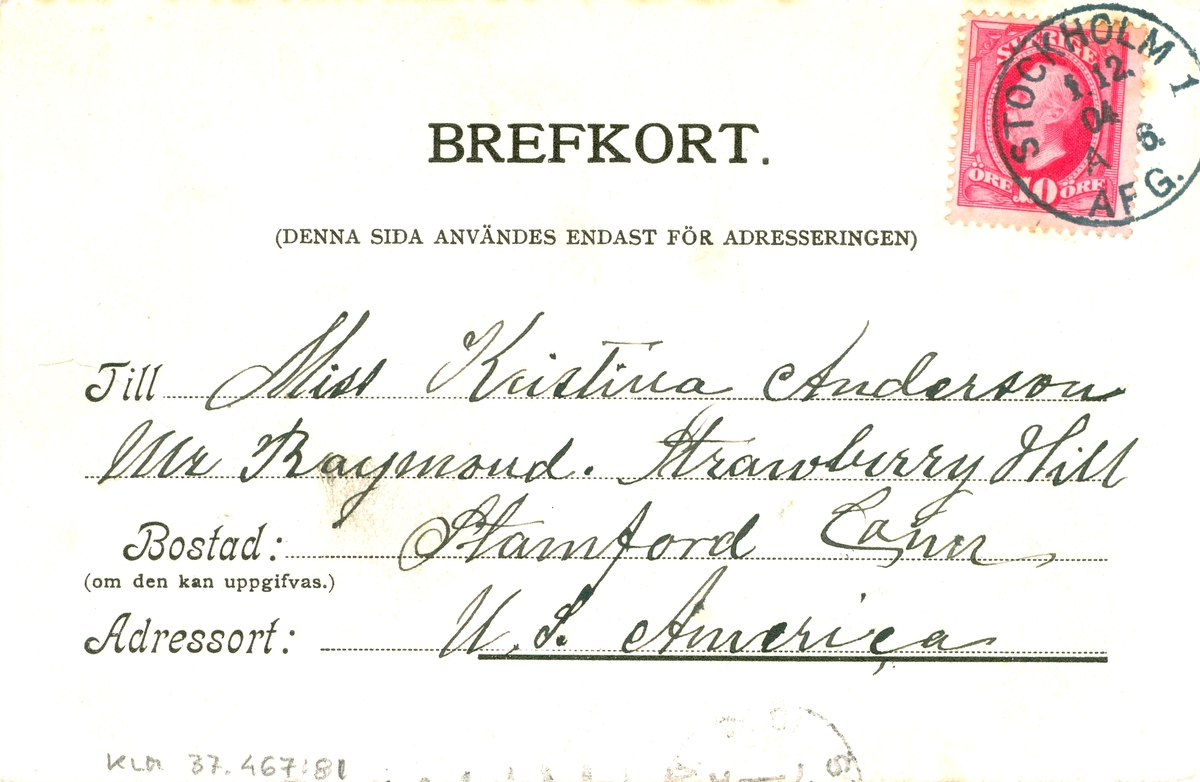 BREFKORT.
(DENNA SIDA ANVÄNDES ENDAST FÖR ADRESSERINGEN)
SVERIGE
ÖRE 10 ÖRE
STOCKHOLM 1
1.12.
04
A 6.
AFG.
Till Miss Kristina Anderson
Mr Raymond. Strawberry Hill
Bostad: Stamford Conn
(om den kan uppgifvas.)
Adressort: U. S. America
KLM 37.467:81